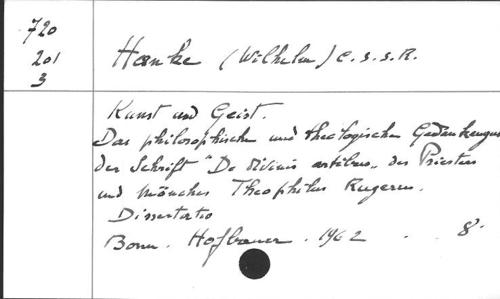 720
201
3
Hanke (Wilhelm) C.S.S.R.
Kunst und Geist.
Das philosophische und theologische Gedankengut
der Schrift "De Divinis artibus" des Priesters
und Mönches Theophilus Rugerus.
Dissertatio
Bonn. Hofbauer. 1962 . 8°.